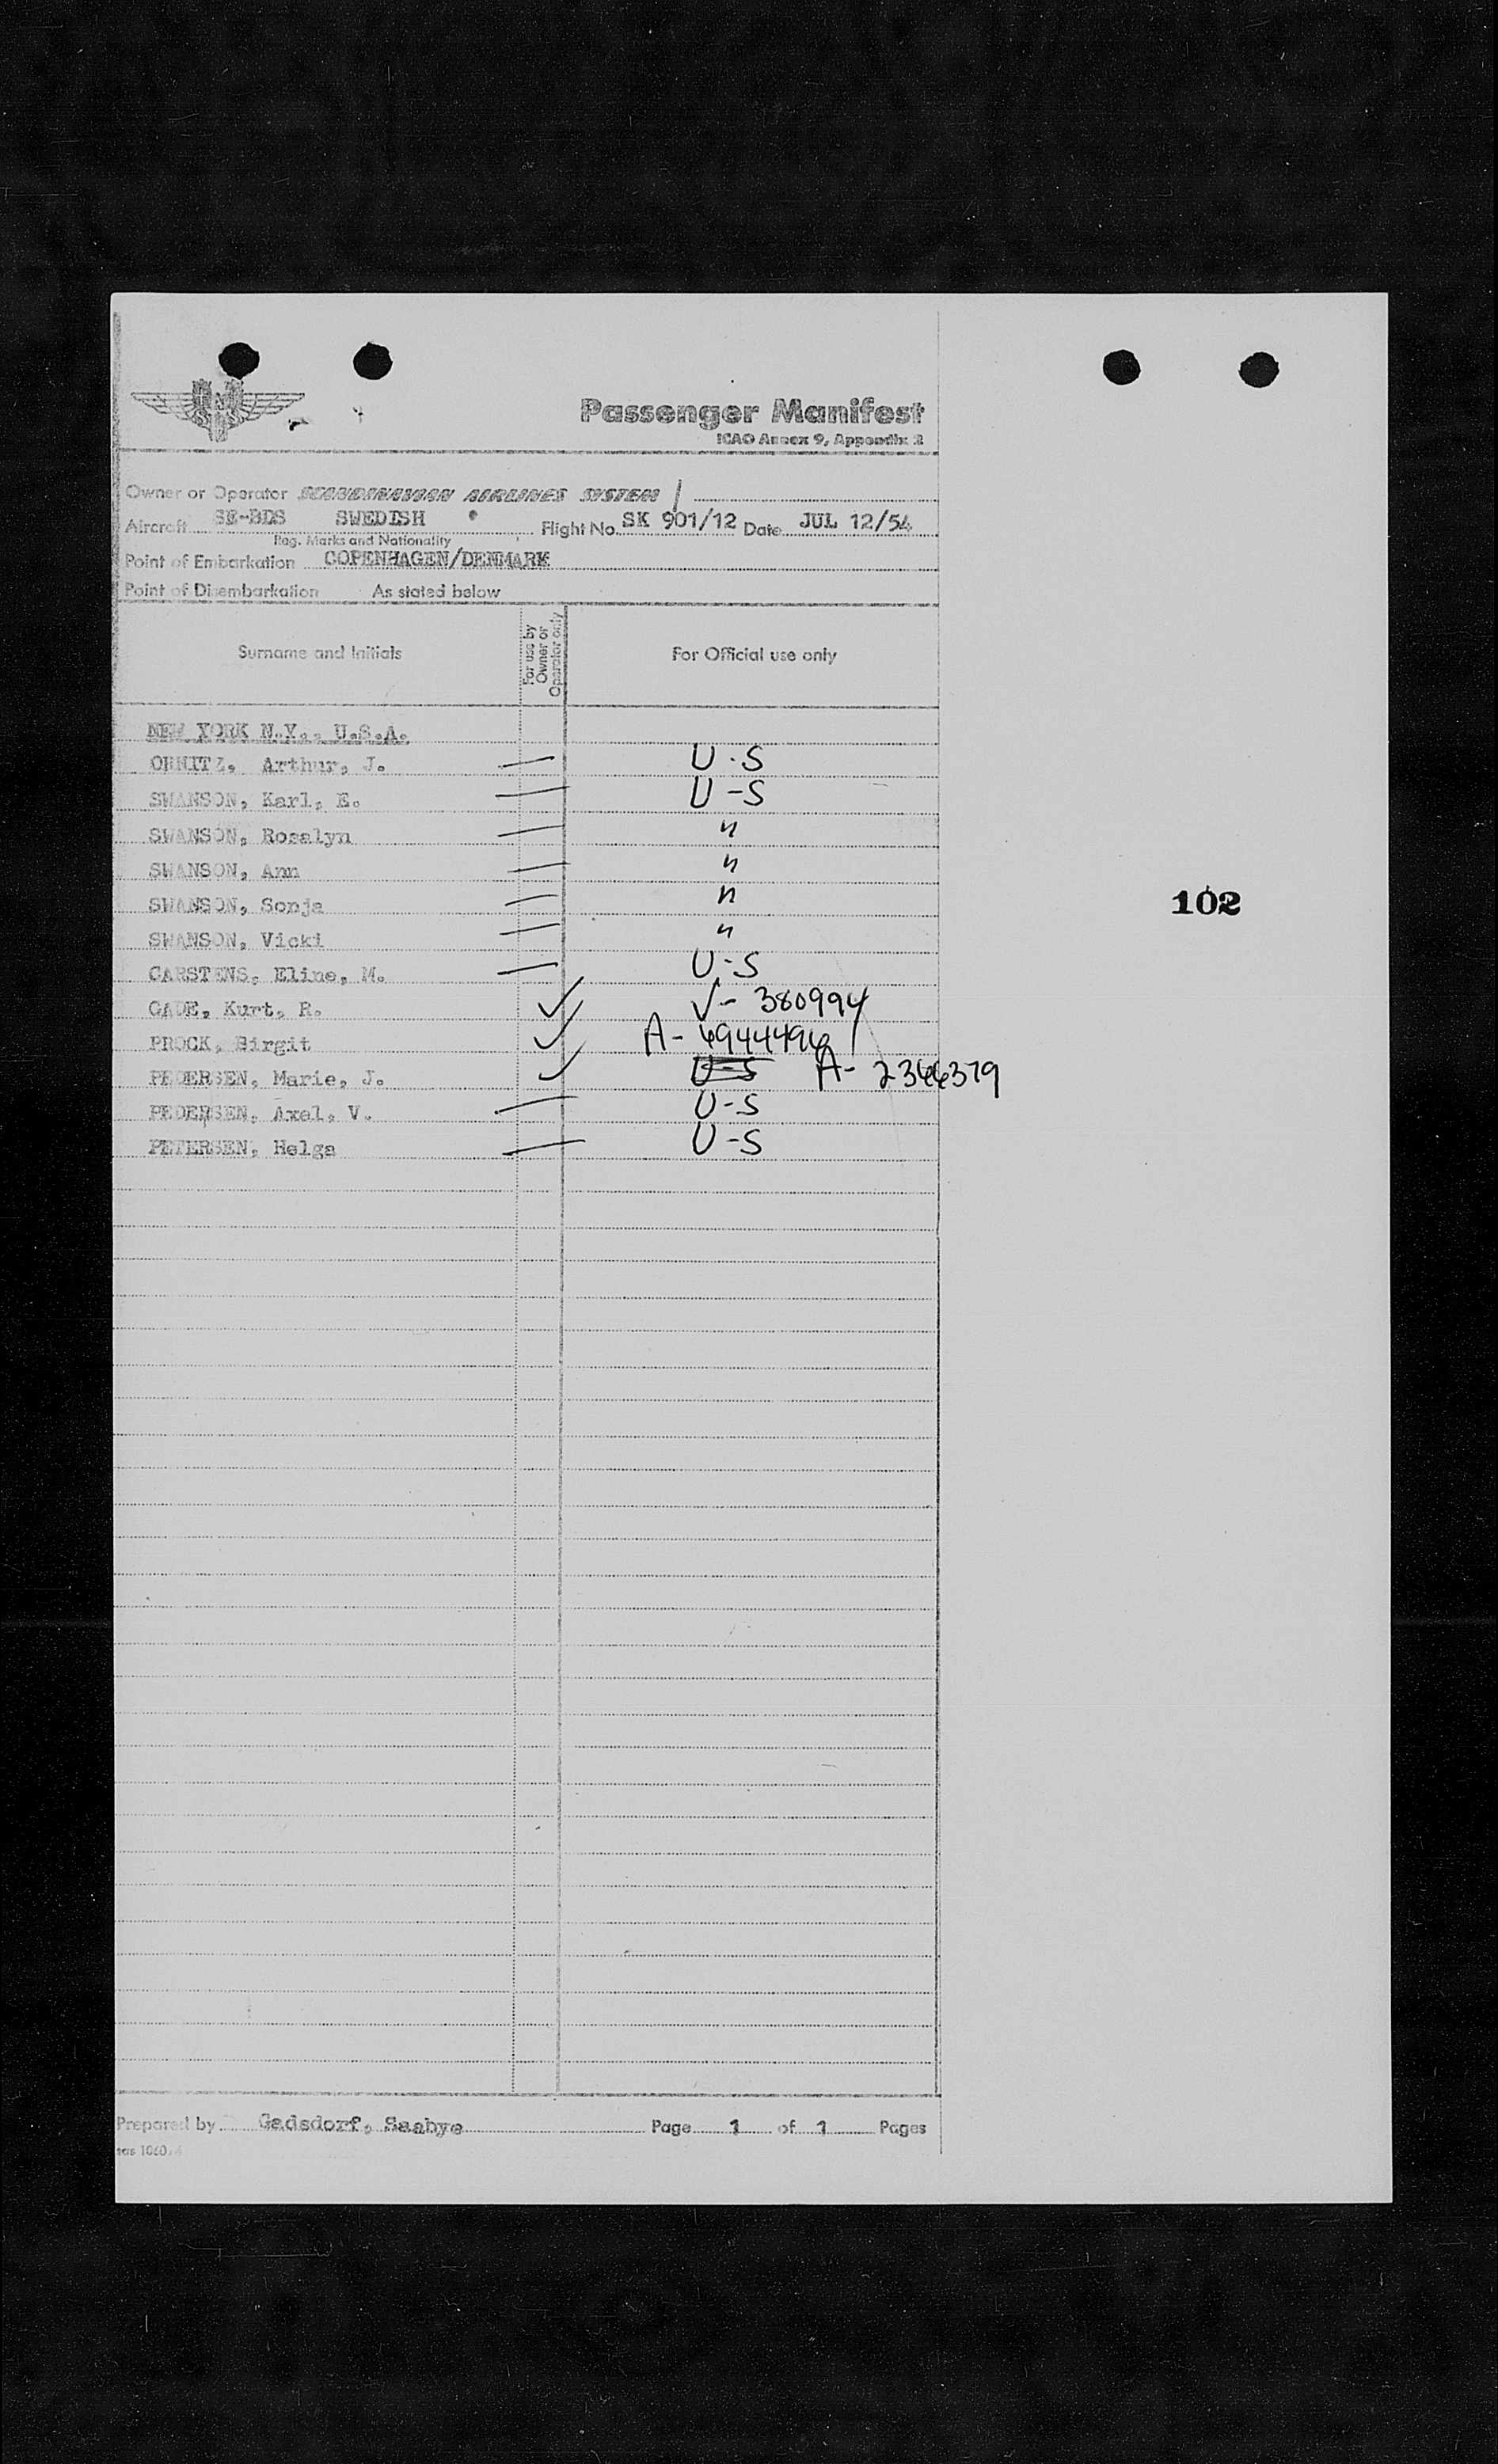 Passenger Manifest
ICAO Annex 9, Appendix 2
Owner or Operator SCANDINAVIAN AIRLINES SYSTEM
Aircraft SE-BDS SWEDISH Flight No. SK 901/12 Date JUL 12/54
Reg. Marks and Nationality
Point of Embarkation COPENHAGEN/DENMARK
Point of Disembarkation As stated below
Surname and Initials For use by Owner or Operator only For Official use only
NEW YORK N.Y., U.S.A.
ORNITZ, Arthur, J. — U.S
SWANSON, Karl, E. — U-S
SWANSON, Rosalyn — "
SWANSON, Ann — "
SWANSON, Sonja — "
102
SWANSON, Vicki — "
CARSTENS, Eline, M. — U-S
GADE, Kurt, R. ✓ V- 380994
PROCK, Birgit ✓ A-
PEDERSEN, Marie, J. ✓ U-S A- 2366379
PEDERSEN, Axel, V. — U-S
PETERSEN, Helga — U-S
Prepared by Gadsdorf, Saabye Page 1 of 1 Pages
sas 1060